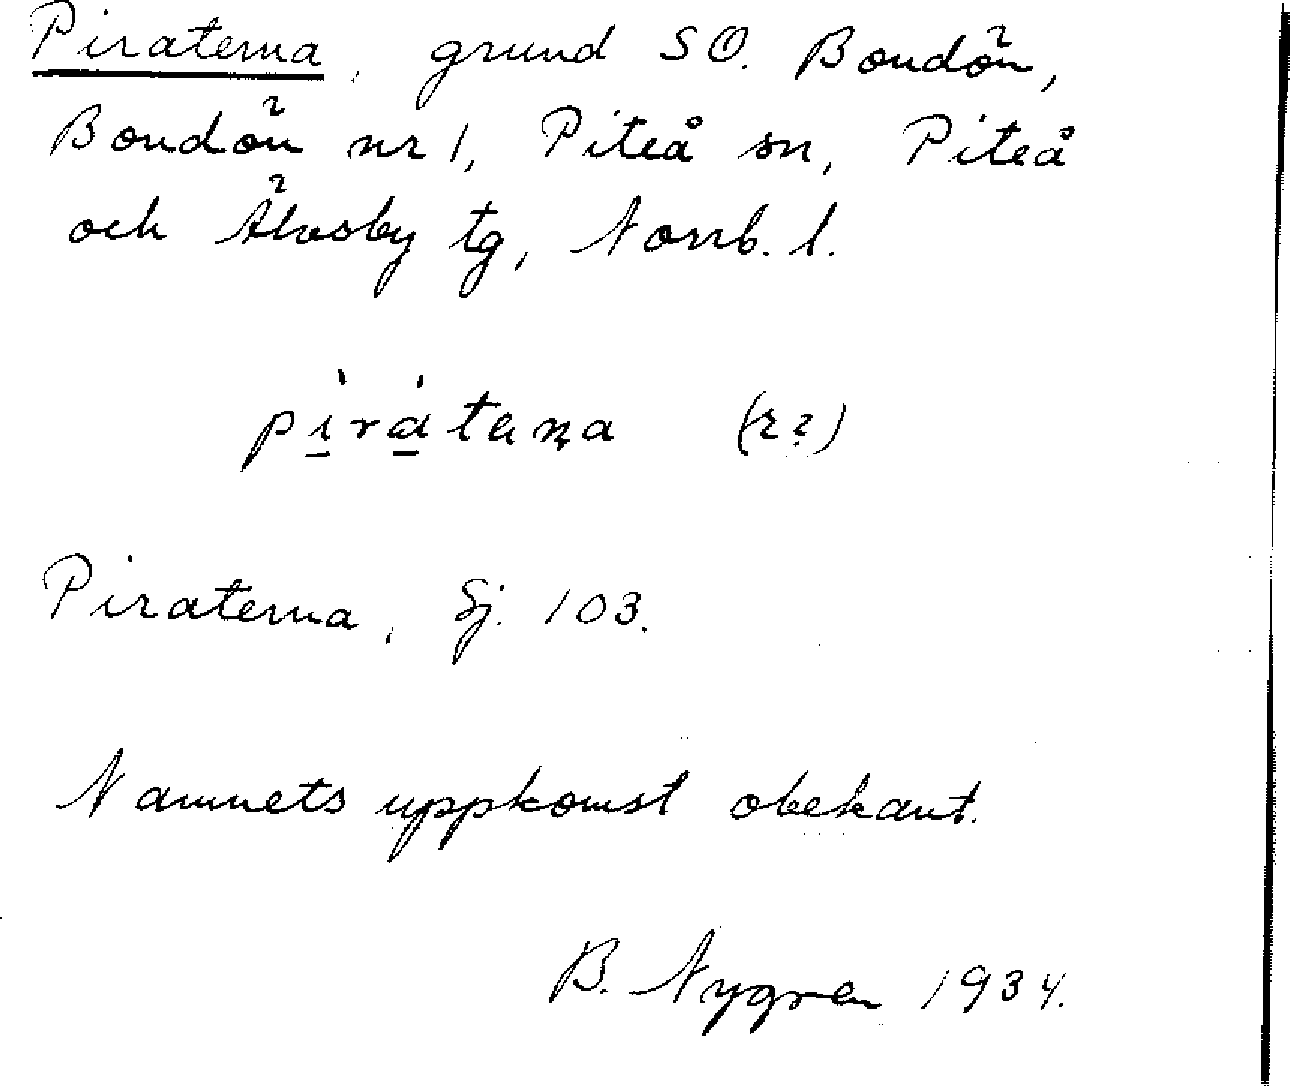 Piraterna, grund SO. Bondön,
Bondön nr 1, Piteå sn, Piteå
och Älvsby tg, Norrb. l.
pìrátaṇa (r?)
Piraterna, Sj. 103.
Namnets uppkomst obekant.
B. Nygren 1934.